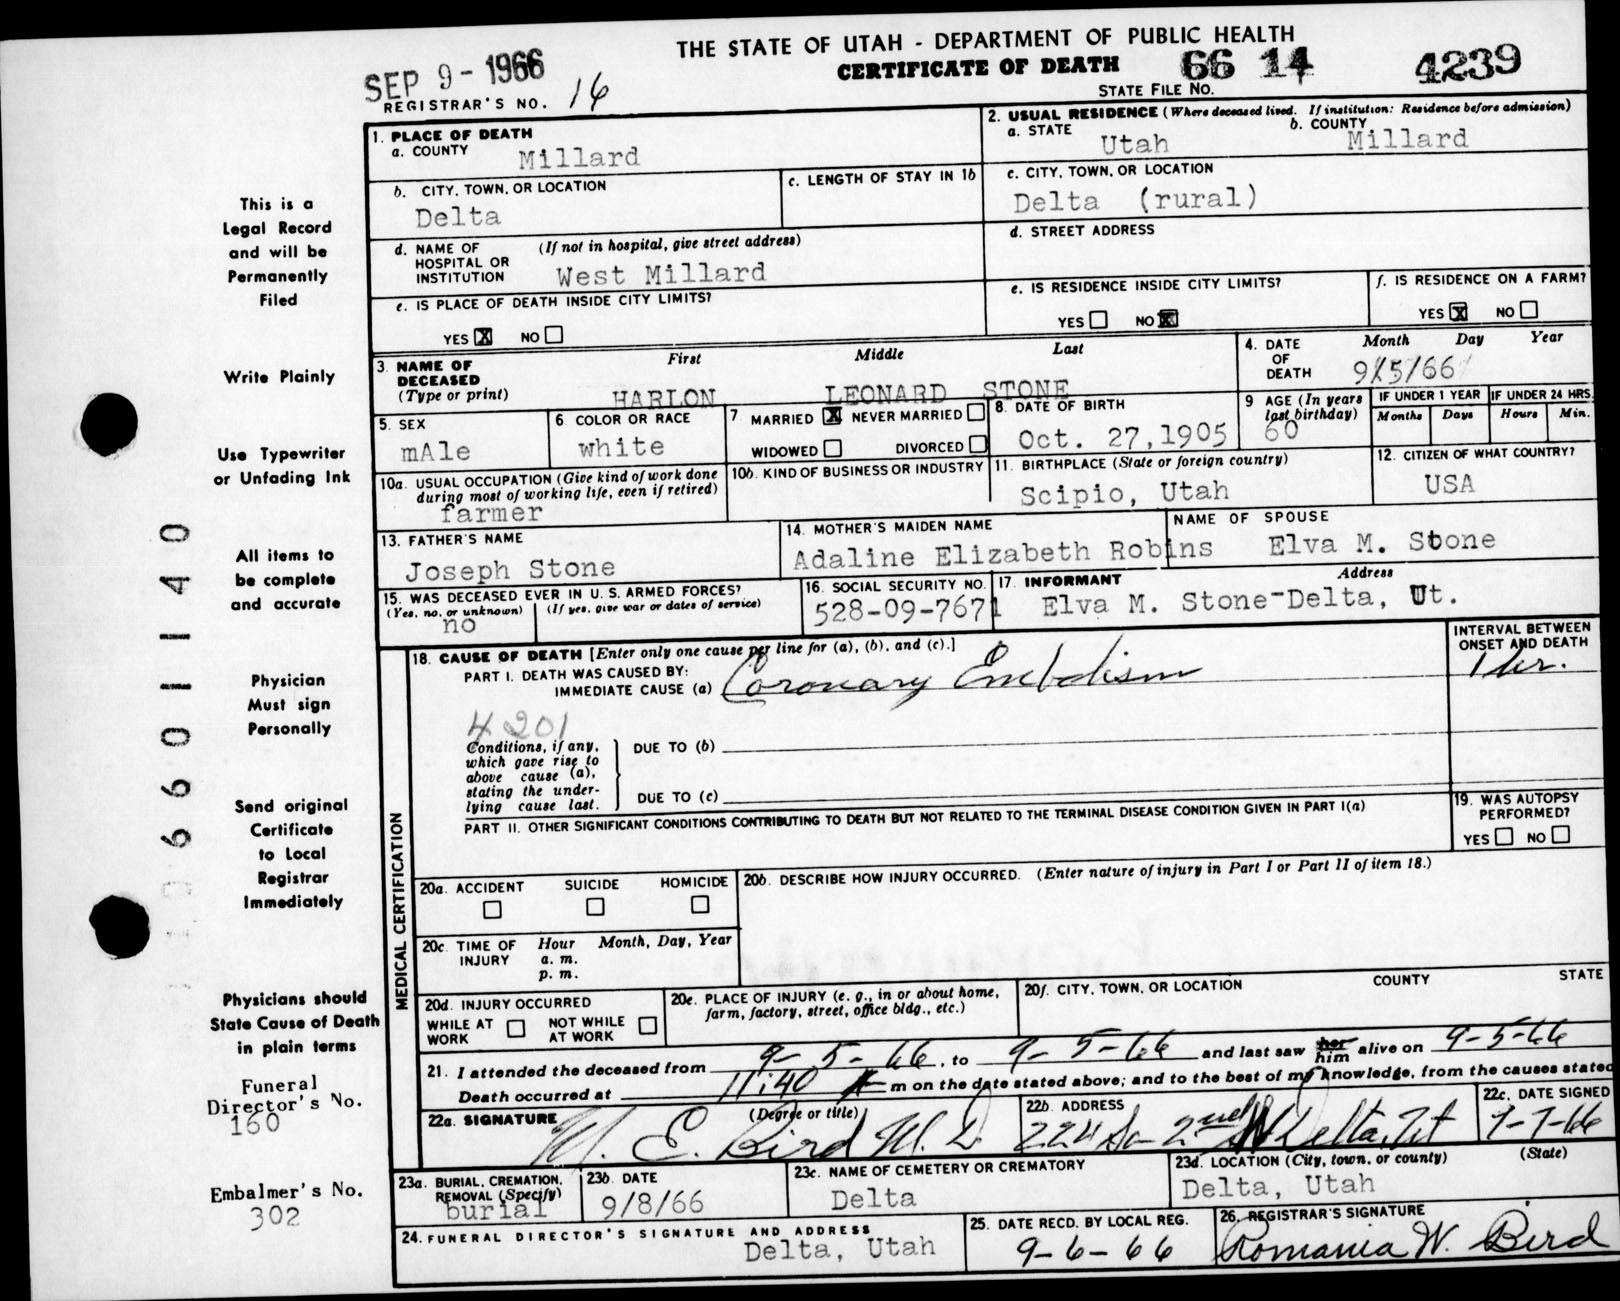 THE STATE OF UTAH - DEPARTMENT OF PUBLIC HEALTH
CERTIFICATE OF DEATH
SEP 9 - 1966
66 14 4239
STATE FILE NO.
REGISTRAR'S NO. 16
1. PLACE OF DEATH
a. COUNTY Millard
2. USUAL RESIDENCE (Where deceased lived. If institution: Residence before admission)
a. STATE Utah b. COUNTY Millard
b. CITY, TOWN, OR LOCATION Delta
c. LENGTH OF STAY IN 1b
c. CITY, TOWN, OR LOCATION
Delta (rural)
d. NAME OF HOSPITAL OR INSTITUTION (If not in hospital, give street address)
West Millard
d. STREET ADDRESS
e. IS PLACE OF DEATH INSIDE CITY LIMITS?
YES X NO
e. IS RESIDENCE INSIDE CITY LIMITS?
YES NO X
f. IS RESIDENCE ON A FARM?
YES X NO
3. NAME OF DECEASED (Type or print)
First Middle Last
HARLON LEONARD STONE
4. DATE OF DEATH Month Day Year
9/5/66
5. SEX
mAle
6 COLOR OR RACE
white
7 MARRIED X NEVER MARRIED
WIDOWED DIVORCED
8. DATE OF BIRTH
Oct. 27,1905
9 AGE (In years last birthday)
60
IF UNDER 1 YEAR
Months Days
IF UNDER 24 HRS.
Hours Min.
10a. USUAL OCCUPATION (Give kind of work done during most of working life, even if retired)
farmer
10b. KIND OF BUSINESS OR INDUSTRY
11. BIRTHPLACE (State or foreign country)
Scipio, Utah
12. CITIZEN OF WHAT COUNTRY?
USA
13. FATHER'S NAME
Joseph Stone
14. MOTHER'S MAIDEN NAME
Adaline Elizabeth Robins
NAME OF SPOUSE
Elva M. Stone
15. WAS DECEASED EVER IN U. S. ARMED FORCES?
(Yes, no, or unknown) (If yes, give war or dates of service)
no
16. SOCIAL SECURITY NO.
528-09-7671
17. INFORMANT Address
Elva M. Stone-Delta, Ut.
MEDICAL CERTIFICATION
18. CAUSE OF DEATH [Enter only one cause per line for (a), (b), and (c).]
INTERVAL BETWEEN ONSET AND DEATH
PART I. DEATH WAS CAUSED BY:
IMMEDIATE CAUSE (a) Coronary Embolism
1 hr.
4201
Conditions, if any, which gave rise to above cause (a), stating the underlying cause last.
DUE TO (b)
DUE TO (c)
PART II. OTHER SIGNIFICANT CONDITIONS CONTRIBUTING TO DEATH BUT NOT RELATED TO THE TERMINAL DISEASE CONDITION GIVEN IN PART I(a)
19. WAS AUTOPSY PERFORMED?
YES NO
20a. ACCIDENT SUICIDE HOMICIDE
20b. DESCRIBE HOW INJURY OCCURRED. (Enter nature of injury in Part I or Part II of item 18.)
20c. TIME OF INJURY Hour Month, Day, Year
a. m.
p. m.
20d. INJURY OCCURRED
WHILE AT WORK NOT WHILE AT WORK
20e. PLACE OF INJURY (e. g., in or about home, farm, factory, street, office bldg., etc.)
20f. CITY, TOWN, OR LOCATION COUNTY STATE
21. I attended the deceased from 9-5-66, to 9-5-66 and last saw her him alive on 9-5-66
Death occurred at 11:40 m on the date stated above; and to the best of my knowledge, from the causes stated
22a. SIGNATURE (Degree or title)
M. E. Bird M. D.
22b. ADDRESS
224 So 2nd W Delta, Ut
22c. DATE SIGNED
9-7-66
23a. BURIAL, CREMATION, REMOVAL (Specify)
burial
23b DATE
9/8/66
23c. NAME OF CEMETERY OR CREMATORY
Delta
23d. LOCATION (City, town, or county) (State)
Delta, Utah
24. FUNERAL DIRECTOR'S SIGNATURE AND ADDRESS
Delta, Utah
25. DATE RECD. BY LOCAL REG.
9-6-66
26. REGISTRAR'S SIGNATURE
Romania W. Bird
This is a
Legal Record
and will be
Permanently
Filed
Write Plainly
Use Typewriter
or Unfading Ink
All items to
be complete
and accurate
Physician
Must sign
Personally
Send original
Certificate
to Local
Registrar
Immediately
Physicians should
State Cause of Death
in plain terms
Funeral
Director's No.
160
Embalmer's No.
302